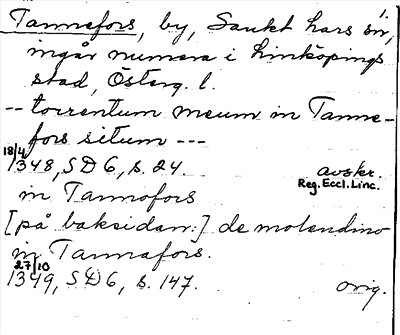 Tannefors, by, Sankt Lars sn,
ingår numera i Linköpings
stad, Österg. l.
-- torrentum meum in Tanne-
fors situm ---
18/4
1348, SD 6, s. 24. avskr.
Reg. Eccl. Linc.
in Tannofors
[på baksidan:] de molendino
in Tannafors.
27/10
1349, SD 6, s. 147. orig.